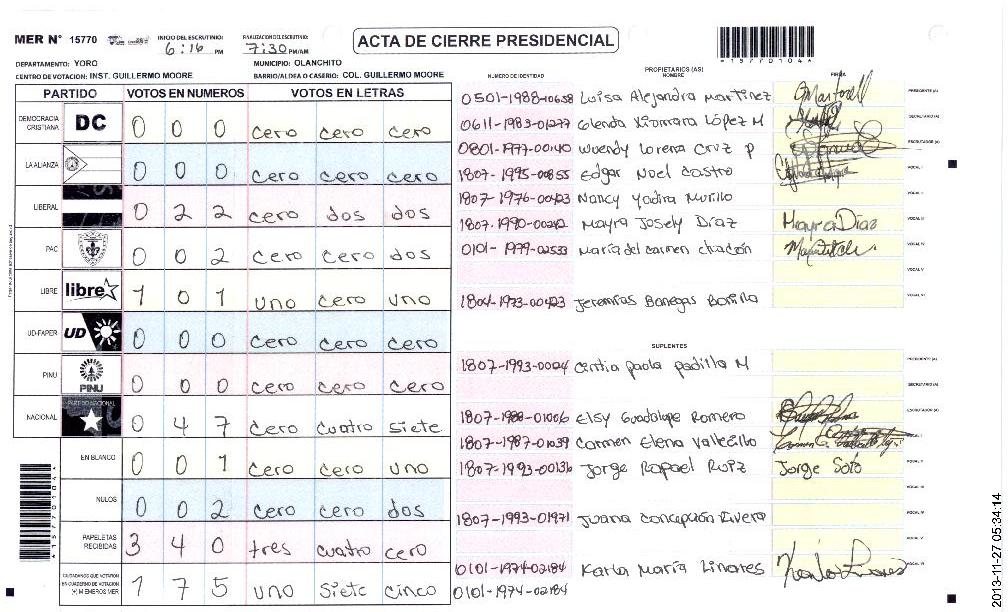 MER N° 15770
INICIO DEL ESCRUTINIO: 6:16 PM
FINALIZACION DEL ESCRUTINIO: 7:30 PM/AM
ACTA DE CIERRE PRESIDENCIAL
*1577010 4*
DEPARTAMENTO: YORO
MUNICIPIO: OLANCHITO
CENTRO DE VOTACION: INST. GUILLERMO MOORE
BARRIO/ALDEA O CASERIO: COL. GUILLERMO MOORE
PARTIDO VOTOS EN NUMEROS VOTOS EN LETRAS
DEMOCRACIA CRISTIANA DC 0 0 0 cero cero cero
LA ALIANZA 0 0 0 cero cero cero
LIBERAL 0 2 2 cero dos dos
PAC 0 0 2 cero cero dos
LIBRE libre 1 0 1 uno cero uno
UD-FAPER UD 0 0 0 cero cero cero
PINU PINU 0 0 0 cero cero cero
NACIONAL PARTIDO NACIONAL 0 4 7 cero cuatro siete
EN BLANCO 0 0 1 cero cero uno
NULOS 0 0 2 cero cero dos
PAPELETAS RECIBIDAS 3 4 0 tres cuatro cero
CIUDADANOS QUE VOTARON EN CUADERNO DE VOTACION (+) MIEMBROS MER 1 7 5 uno siete cinco
NUMERO DE IDENTIDAD
PROPIETARIOS (AS)
NOMBRE
FIRMA
0501-1988-10658 Luisa Alejandra Martinez PRESIDENTE (A)
0611-1983-01277 Glenda Xiomara López M SECRETARIO (A)
0801-1977-00140 Wuendy Lorena Cruz P ESCRUTADOR (A)
1807-1995-00855 Edgar Noel Castro VOCAL I
1807-1976-00423 Nancy Yadira Murillo VOCAL II
1807-1990-00242 Mayra Josely Díaz Mayra Díaz VOCAL III
0101-1979-02533 María del carmen chacón VOCAL IV
VOCAL V
1804-1973-00423 Jeremías Banegas Bonilla VOCAL VI
SUPLENTES
1807-1993-00024 Cintia paola padilla M PRESIDENTE (A)
SECRETARIO (A)
1807-1988-01006 Elsy Guadalupe Romero ESCRUTADOR (A)
1807-1987-01039 Carmen Elena Vallecillo VOCAL I
1807-1993-00136 Jorge Rafael Ruiz Jorge Soto VOCAL II
VOCAL III
1807-1993-01971 Juana Concepción Rivera VOCAL IV
VOCAL V
0101-1974-02184 Karla María Linares VOCAL VI
0101-1974-02184
2013-11-27 05:34:14